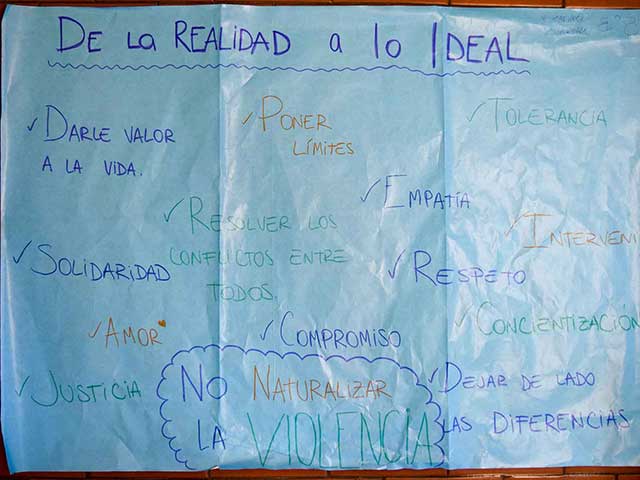 DE LA REALIDAD A lo IDEAL
✓ DARLE VALOR
A LA VIDA.
✓ PONER
LÍMITES
✓ TOLERANCIA
✓ EMPATÍA
✓ RESOLVER LOS
CONFLICTOS ENTRE
TODOS.
✓ INTERVENI
✓ SOLIDARIDAD
✓ RESPETO
✓ AMOR
✓ COMPROMISO
✓ CONCIENTIZACIÓN
✓ JUSTICIA
NO NATURALIZAR
LA VIOLENCIA
✓ DEJAR DE LADO
LAS DIFERENCIAS